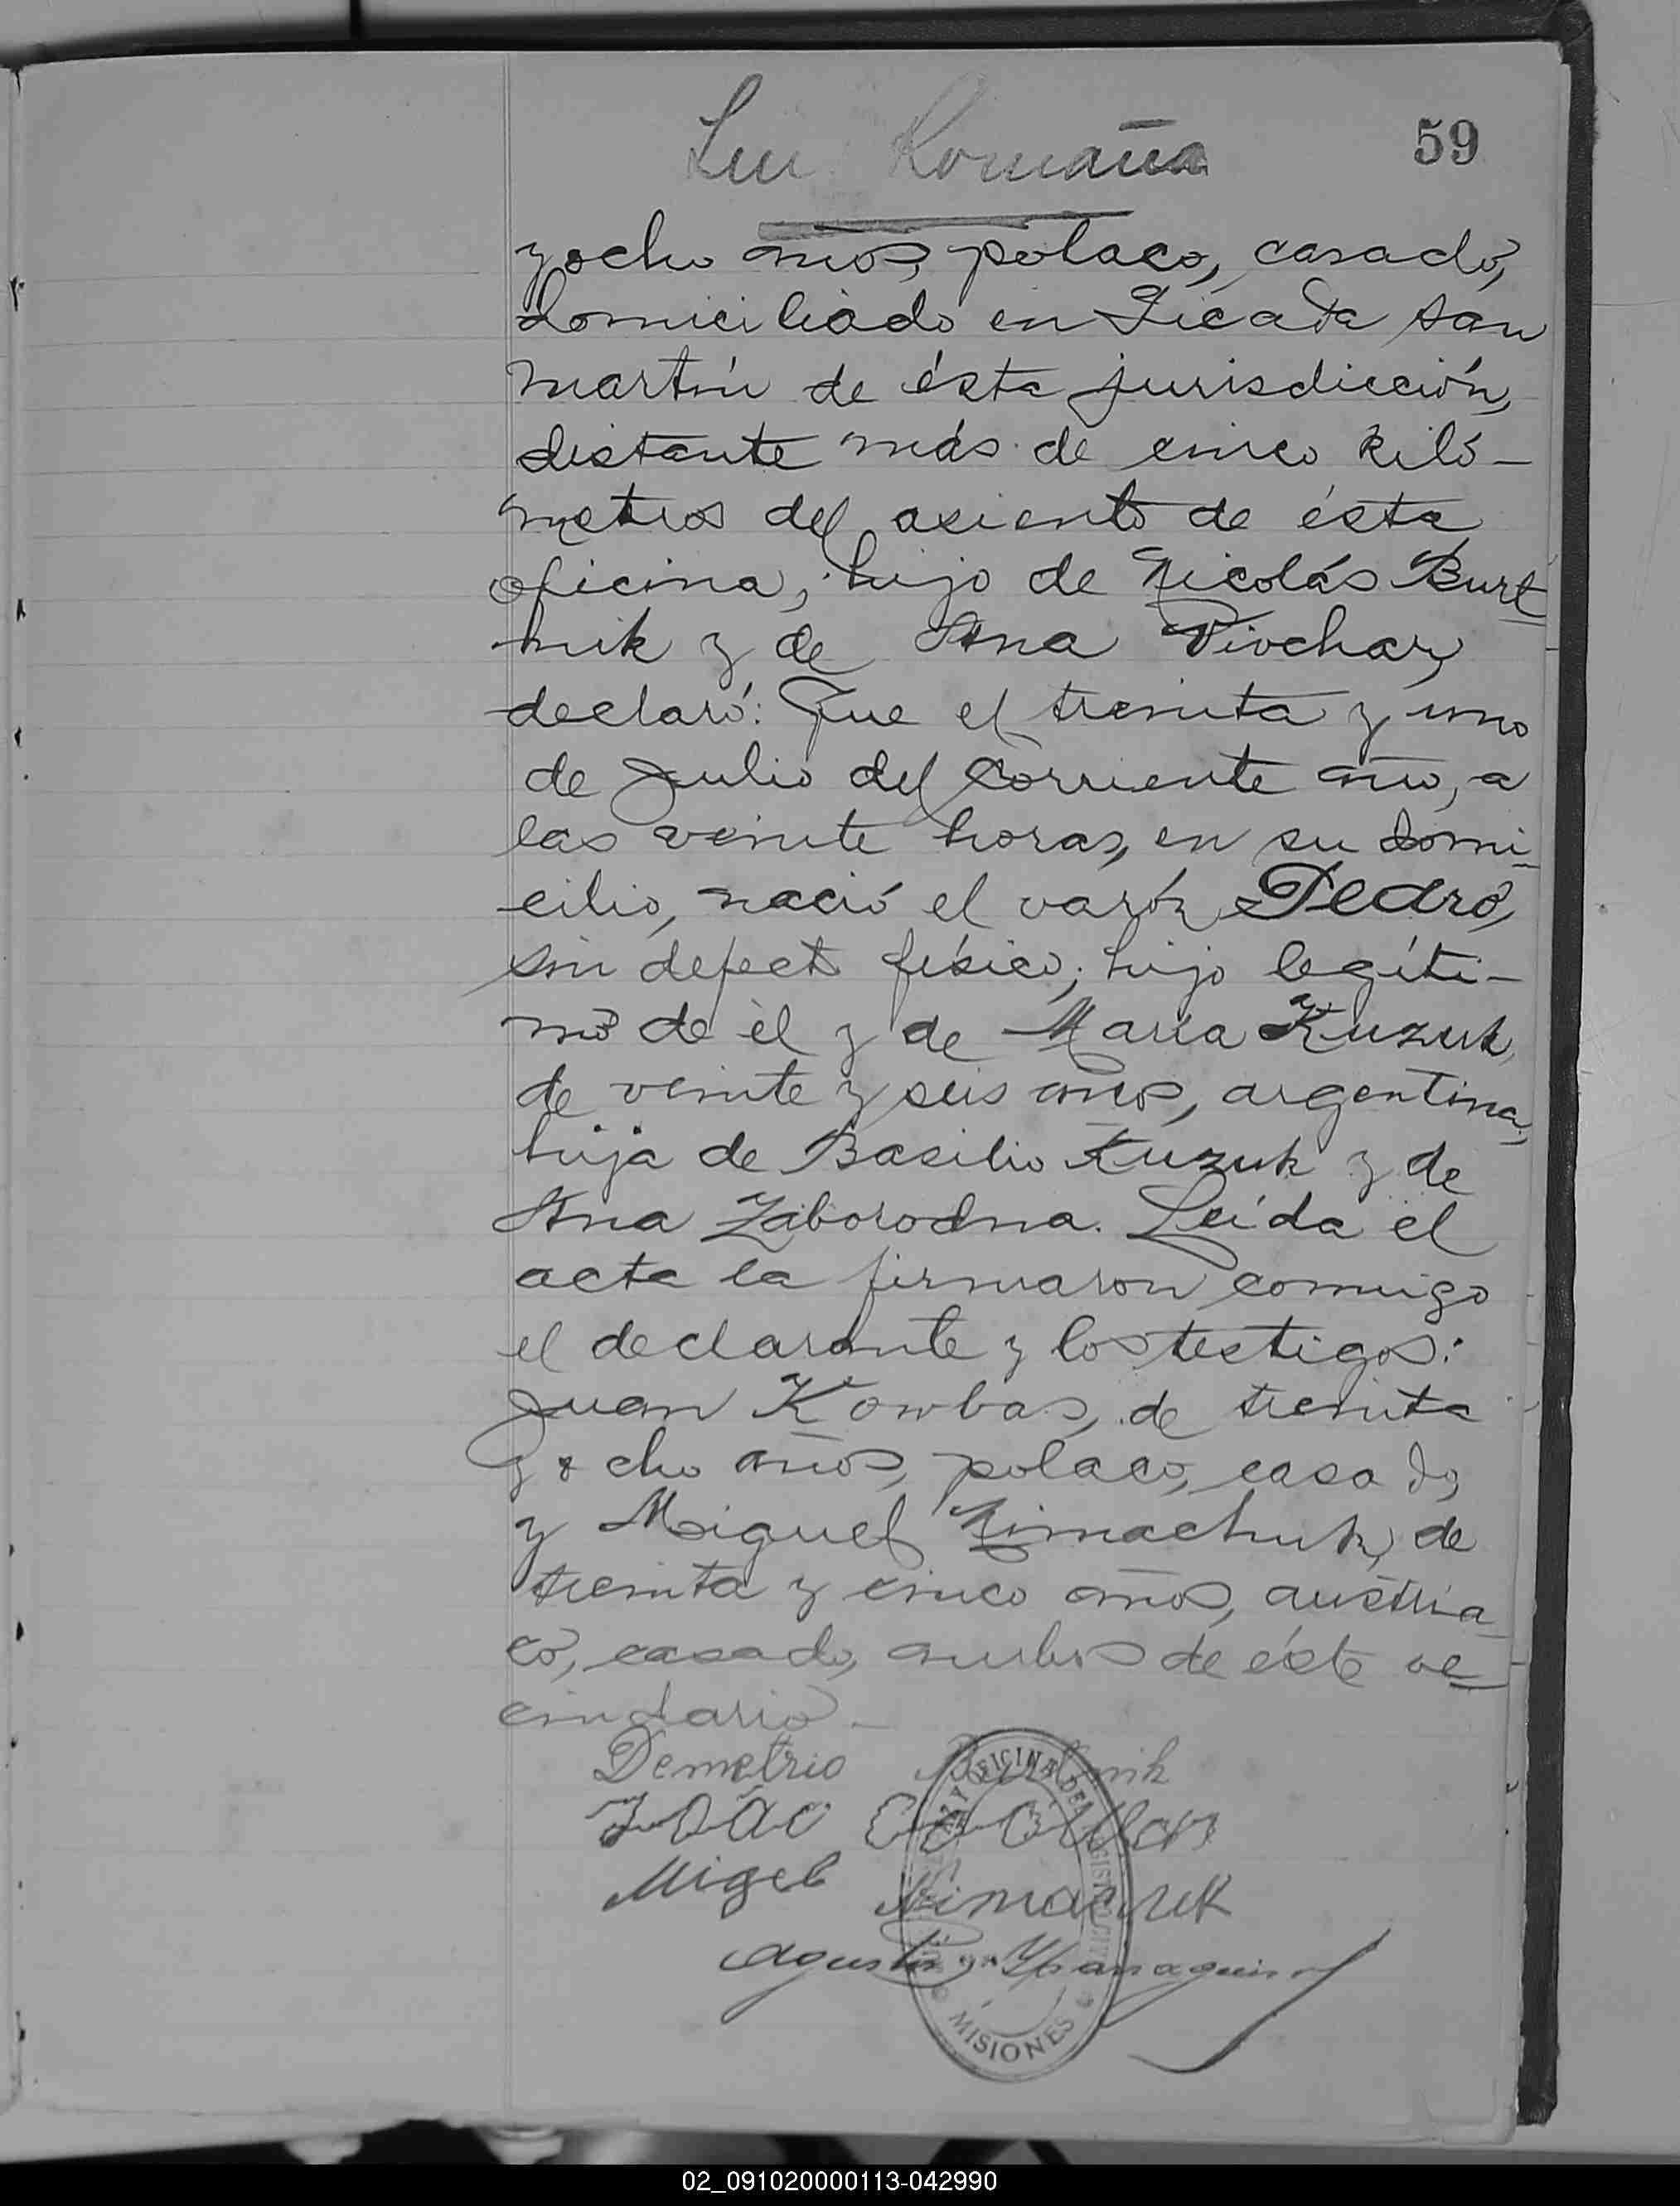 59
y ocho años, polaco, casado,
domiciliado en Picada San
Martín de ésta jurisdicción,
distante más de cinco kiló-
metros del asiento de ésta
oficina, hijo de Nicolás Burt
nik y de Ana Piochar,
declaró: Que el treinta y uno
de Julio del corriente año, a
las veinte horas, en su domi-
cilio, nació el varón Pedro,
sin defecto físico; hijo legíti-
mo de él y de María Kuzuk
de veinte y seis años, argentina,
hija de Basilio Kuzuk y de
Ana Zaborodna. Leída el
acta la firmaron conmigo
el declarante y los testigos:
Juan Kowbas, de treinta
y ocho años, polaco, casado,
y Miguel Nimachuk, de
treinta y cinco años, austria-
co, casado, ambos de éste ve-
cindario.-
Demetrio Burtnik
João
Migel Nimaczuk
Agustín
OFICINA DEL REGISTRO CIVIL
MISIONES
02_091020000113-042990